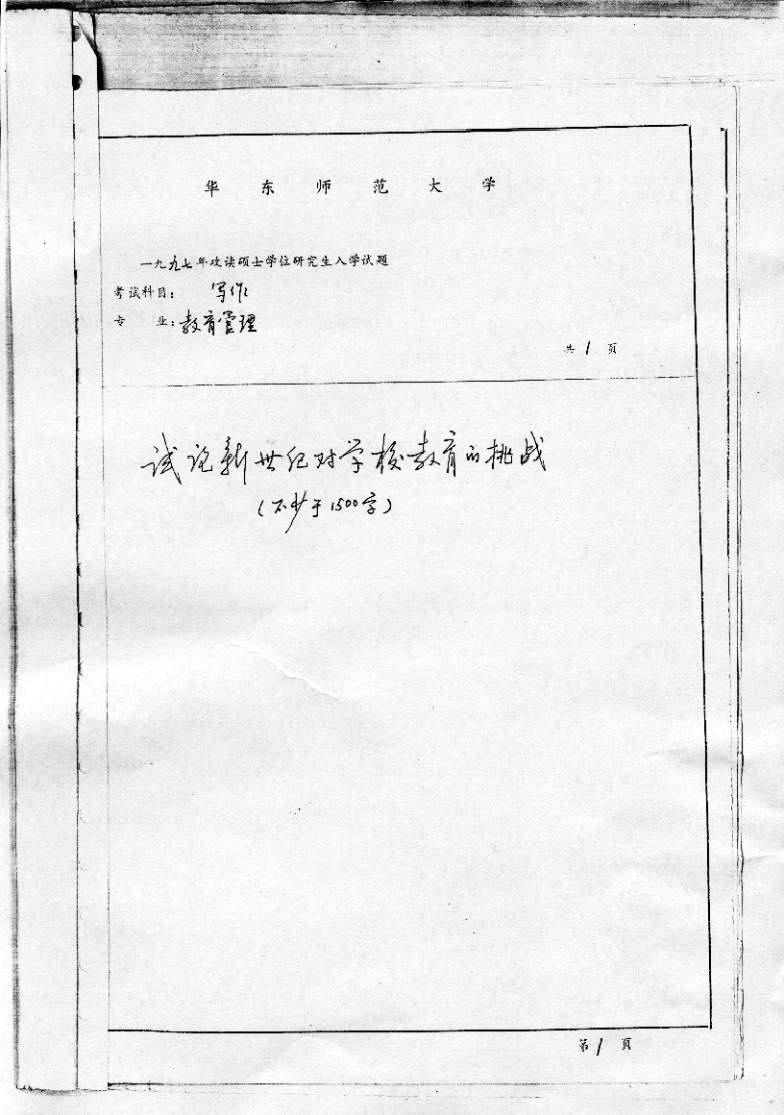 华东师范大学
一九九七年攻读硕士学位研究生入学试题
考试科目：写作
专业：教育管理
共1页
试论新世纪对学校教育的挑战
（不少于1500字）
第1页